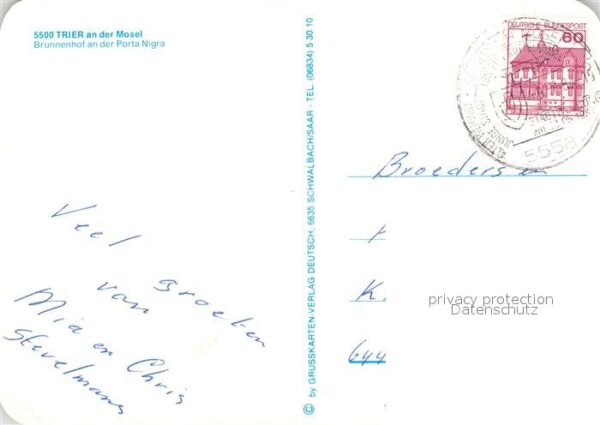 5500 TRIER an der Mosel
Brunnenhof an der Porta Nigra
Veel Groeten
van
Mia en Chris
Stevelmans
© by GRUSSKARTEN-VERLAG DEUTSCH, 6635 SCHWALBACH/SAAR - TEL. (06834) 5 30 10
DEUTSCHE BUNDESPOST
60
5558
Broeders
K.
644
privacy protection
Datenschutz